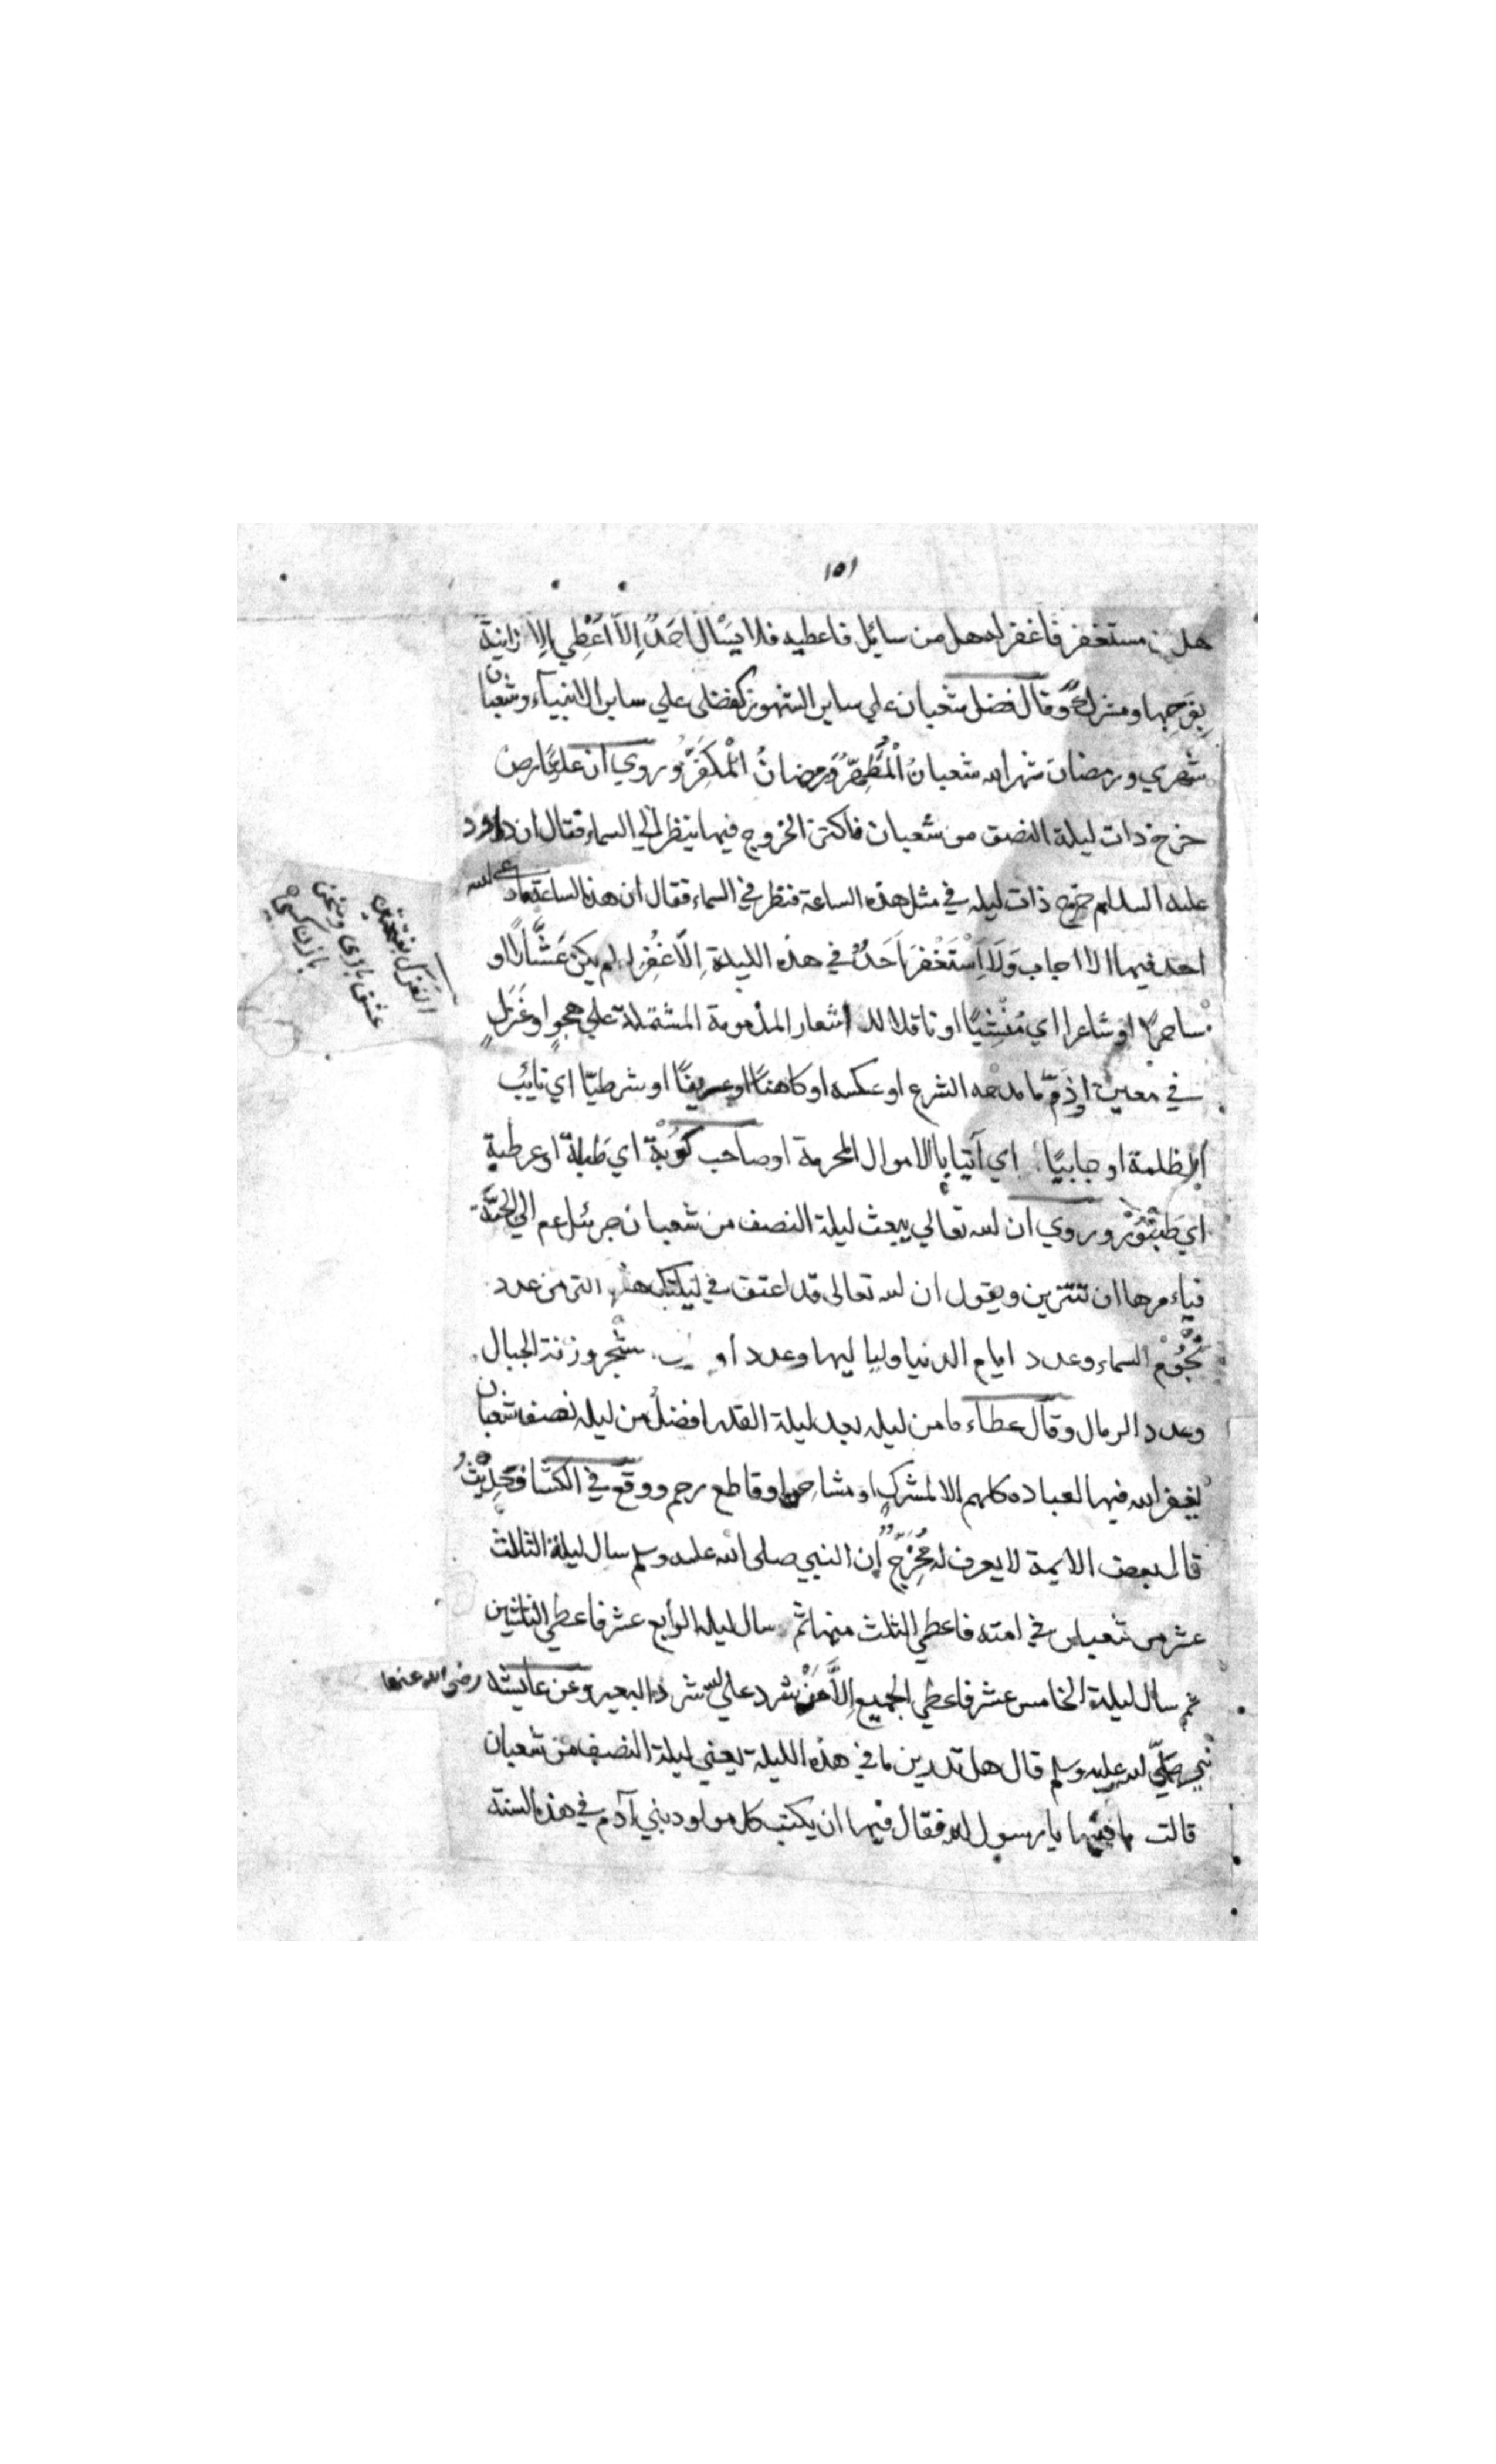 ١٥١
هل من مستغفر فاغفر له هل من سايل فاعطيه فلا يَسْاَل اَحَدٌ اِلاّ اُعْطِي اِلاّ زانية
بِفَرجِها و مشرك وقال فضل شعبان علي ساير الشهور كفضلي علي ساير الانبيآء وشعبان
شهري ورمضان شهر الله شعبانُ اَلْمُطَهِّرُ وَرمضانُ اَلْمُكَفِّرُ وروي ان عليًا رض
خرج ذات ليلة النصف من شعبان فاكثر الخروج فيها ينظر الي السماء فقال ان داود
عليه السلام خرج ذات ليله في مثل هذه الساعة فنظر في السماء فقال ان هذه الساعة مادعي الله
احد فيها الا اجاب وَلاَ اِسْتَغْفَرَ اَحَدٌ في هذه الليلة اِلاّ غُفِرَ له لم يكن عَشَّارًا او
ساحرًا او شاعرا اي مُنْشِيًا او ناقلا للاشعار المذمومة المشتملة علي هجوٍ او غَزَلٍ
في معين او ذَمّ ما مدحه الشرع او عكسه او كاهنًا او عريفًا او شرطيّا اي نائب
الظلمة او جابيًا اي آتيا بالاموال المحرمة او صاحب كُوبَةٍ اي طبلة او عرطبةٍ
اي طَنْبُوْرٍ وروي ان الله تعالي يبعث ليلة النصف من شعبان جبرئيل عم الي الجنّة
فياءمرها ان تتزين ويقول ان الله تعالى قد اعتق في ليلتك هذه اكثر من عدد
نُجُوْمِ السماء وعدد ايام الدنيا ولياليها وعدد شجر وزنة الجبال
وعدد الرمال وقال عطاء ما من ليله بعد ليلة القدر افضلُ من ليله نصف شعبان
يغفر الله فيها لعباده كلهم الا لمشركٍ او مشاحن او قاطع رحم ووقع في الكشاف حَدِيْثٌ
قال بعض الايمة لا يعرف له مُخْرِجٌ اِن النبي صلى الله عليه وسلم سال ليلة الثالث
عشر من شعبان في امته فاعطي الثلث منها ثم سال ليلة الرابع عشر فاعطي الثلثين
ثم سال ليلة الخامس عشر فاعطي الجميع اِلاَّ مَنْ شرد علي الله شراد البعير وعن عايشة رضى الله عنها
نبي صلّي الله عليه وسلم قال هل تدرين ما في هذه الليلة يعني ليلة النصف من شعبان
قالت ما فيها يا رسول الله فقال فيها ان يكتب كل مولود بني آدم في هذه السنة
الغزل بفتحتين
عشق بازى وسخن
بازن